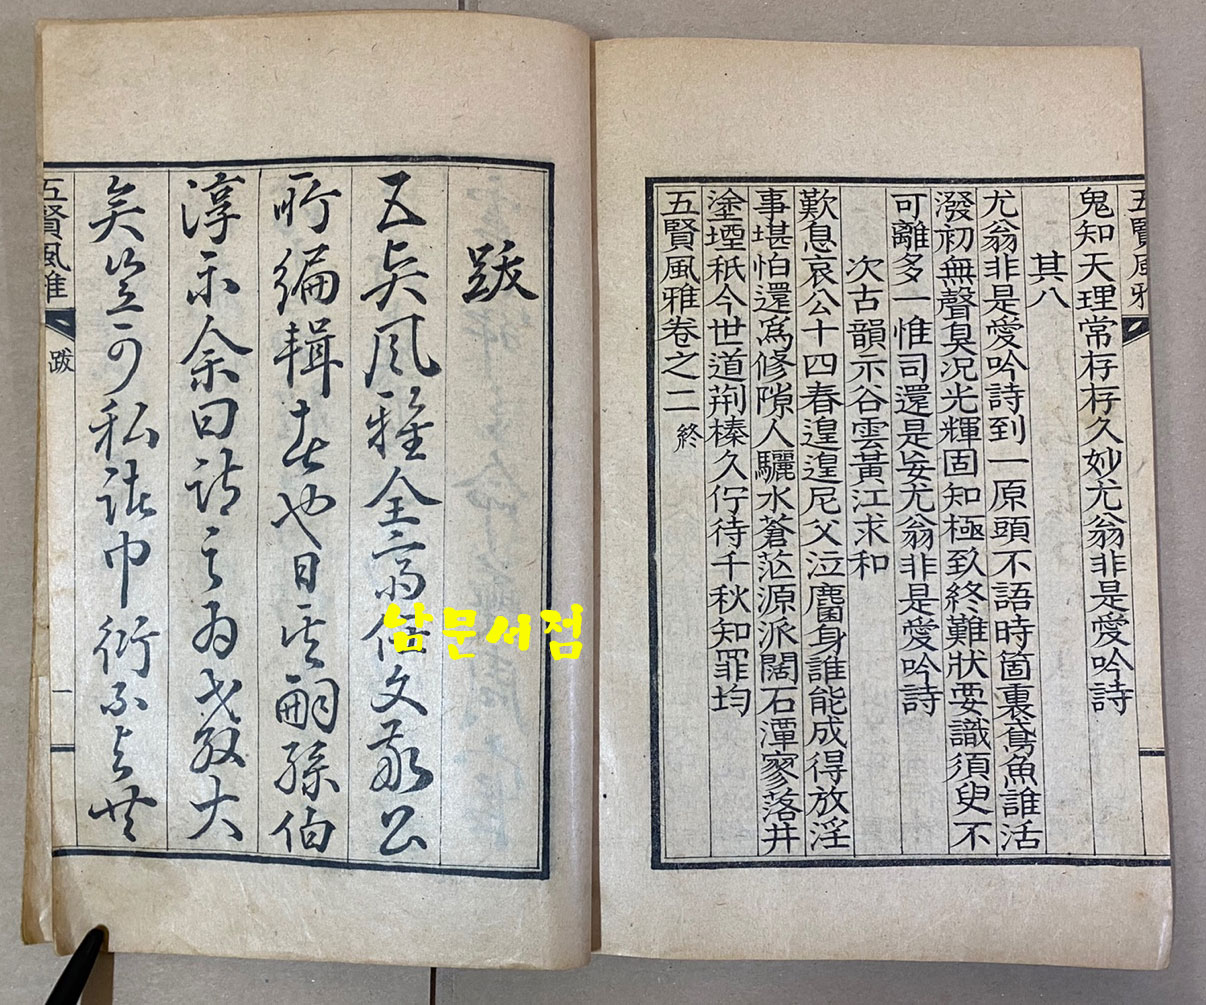 五賢風雅
鬼知天理常存存久妙尤翁非是愛吟詩
其八
尤翁非是愛吟詩到一原頭不語時箇裏鳶魚誰活
潑初無聲臭況光輝固知極致終難狀要識須臾不
可離多一惟司還是妄尤翁非是愛吟詩
次古韻示谷雲黃江求和
歎息哀公十四春遑遑尼父泣麕身誰能成得放淫
事堪怕還爲修隙人驪水蒼茫源派闊石潭寥落井
塗堙秖今世道荊榛久佇待千秋知罪均
五賢風雅卷之二 終
跋
五賢風雅全齋任文敬公
所編輯者也日其嗣孫伯
淳示余曰請之爲
矣豈可私諸巾衍不與世
五賢風雅
跋
一
남문서점